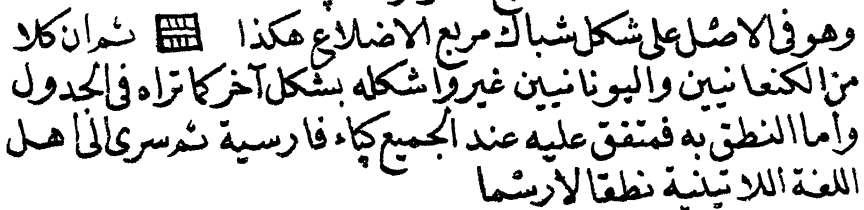 وهو في الاصل على شكل شباك مربع الاضلاع هكذا ثم ان كلا
من الكنعانيين واليونانيين غيروا شكله بشكل آخر كما تراه في الجدول
وأما النطق به فمتفق عليه عند الجميع كپاء فارسية ثم سرى الى اهل
اللغة اللاتينية نطقا لا رسما